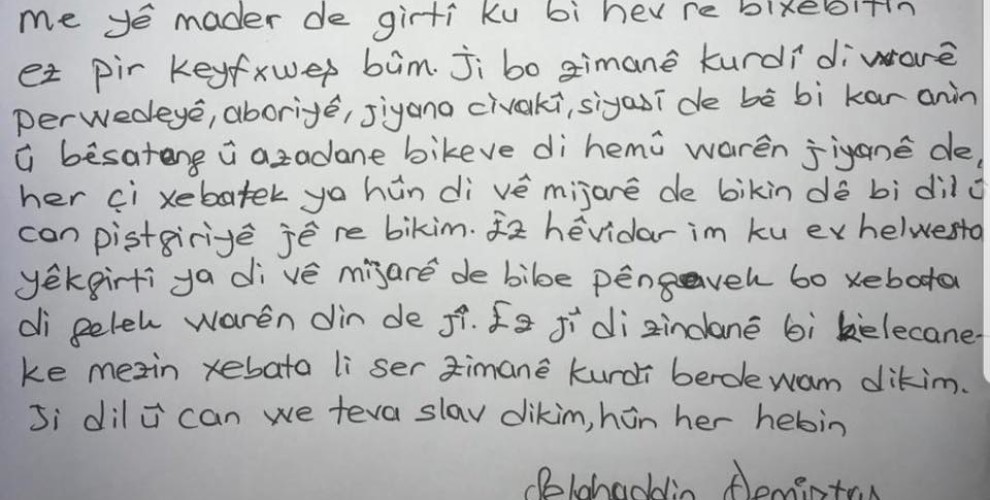 me yê mader de girtî ku bi hev re bixebitin
ez pir keyfxweş bûm. Ji bo zimanê kurdî di warê
perwedeyê, aboriyê, jiyana civakî, siyasî de bê bi kar anîn
û bêsatang û azadane bikeve di hemû warên jiyanê de,
her çi xebatek ya hûn di vê mijarê de bikin dê bi dil û
can piştgiriyê jê re bikim. Ez hêvidar im ku ev helwesta
yêkgirtî ya di vê mijarê de bibe pêngavek bo xebata
di gelek warên din de jî. Ez jî di zindanê bi kelecane-
ke mezin xebata li ser zimanê kurdî berdewam dikim.
Ji dil û can we teva slav dikim, hûn her hebin
Selahaddin Demirtaş